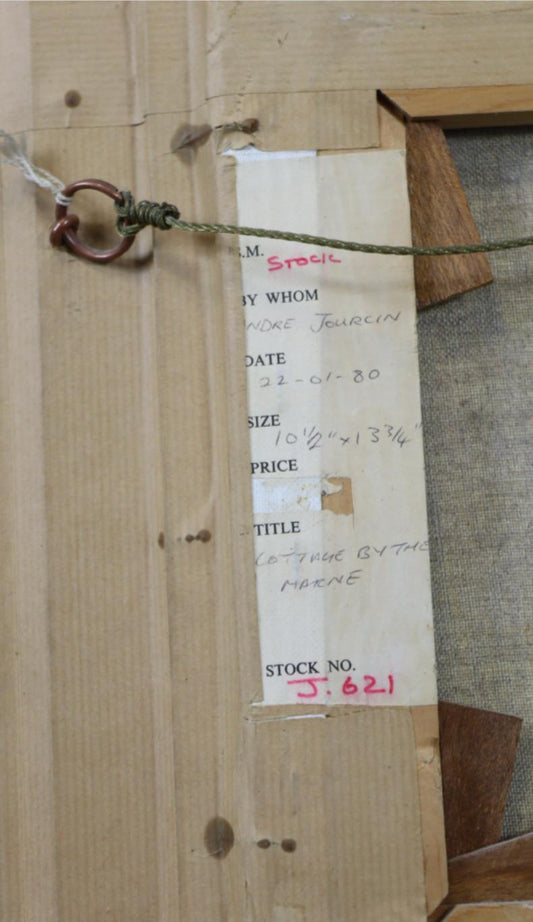 .M.
STOCK
BY WHOM
NDRE JOURCIN
DATE
22-01-80
SIZE
10 1/2" x 13 3/4"
PRICE
TITLE
COTTAGE BY THE
MARNE
STOCK NO.
J.621